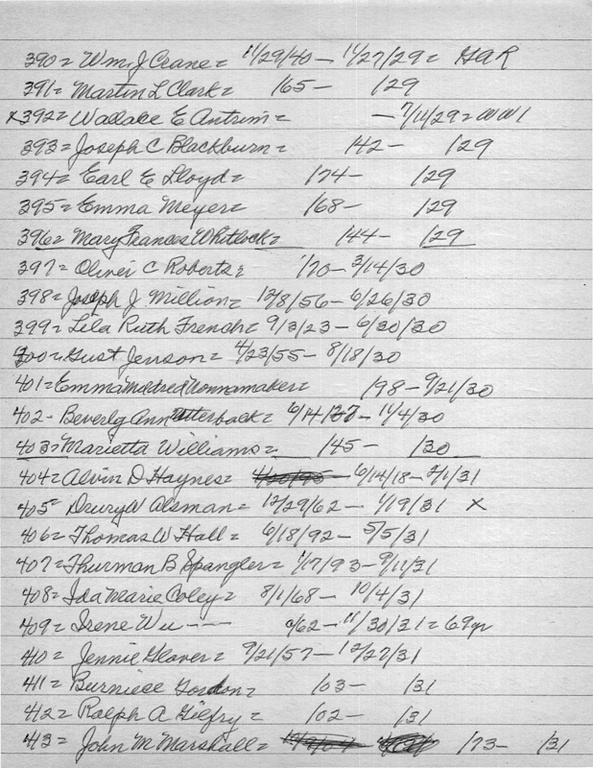 390= Wm. J Crane= 11/29/40- 11/27/29= GAR
391= Martin L Clark= /65- /29
x392= Wallace E Antrim= - 7/11/29= WW1
393= Joseph C Blackburn= /42- /29
394= Earl E Lloyd= /74- /29
395= Emma Meyer= /68- /29
396= Mary Frances Whitlock= /44- /29
397= Oliver C Roberts= /70- 3/14/30
398= Joseph J Million= 12/8/56- 6/26/30
399= Lila Ruth French= 9/3/23- 6/30/30
400= Gust Jenson= 4/23/55- 8/18/30
401= Emma Mildred Wonnamaker= /98- 9/21/30
402- Beverly Ann Utterback= 6/14/27- 11/4/30
403= Marietta Williams= /45- /30
404= Alvin D Haynes= 6/14/18- 2/1/31
405= Drury W Alsman= 12/29/62- 1/19/31 x
406= Thomas W Hall= 6/18/92- 5/5/31
407= Thurman B Spangler= 1/17/93- 9/11/31
408= Ida Marie Coley= 8/1/68- 10/4/31
409= Irene Wu---- /62- 11/30/31= 69yr
410= Jennie Glover= 9/21/57- 12/27/31
411= Burniece Gordon= /03- /31
412= Ralph A Gilfry= /02- /31
413= John M Marshall= /73- /31